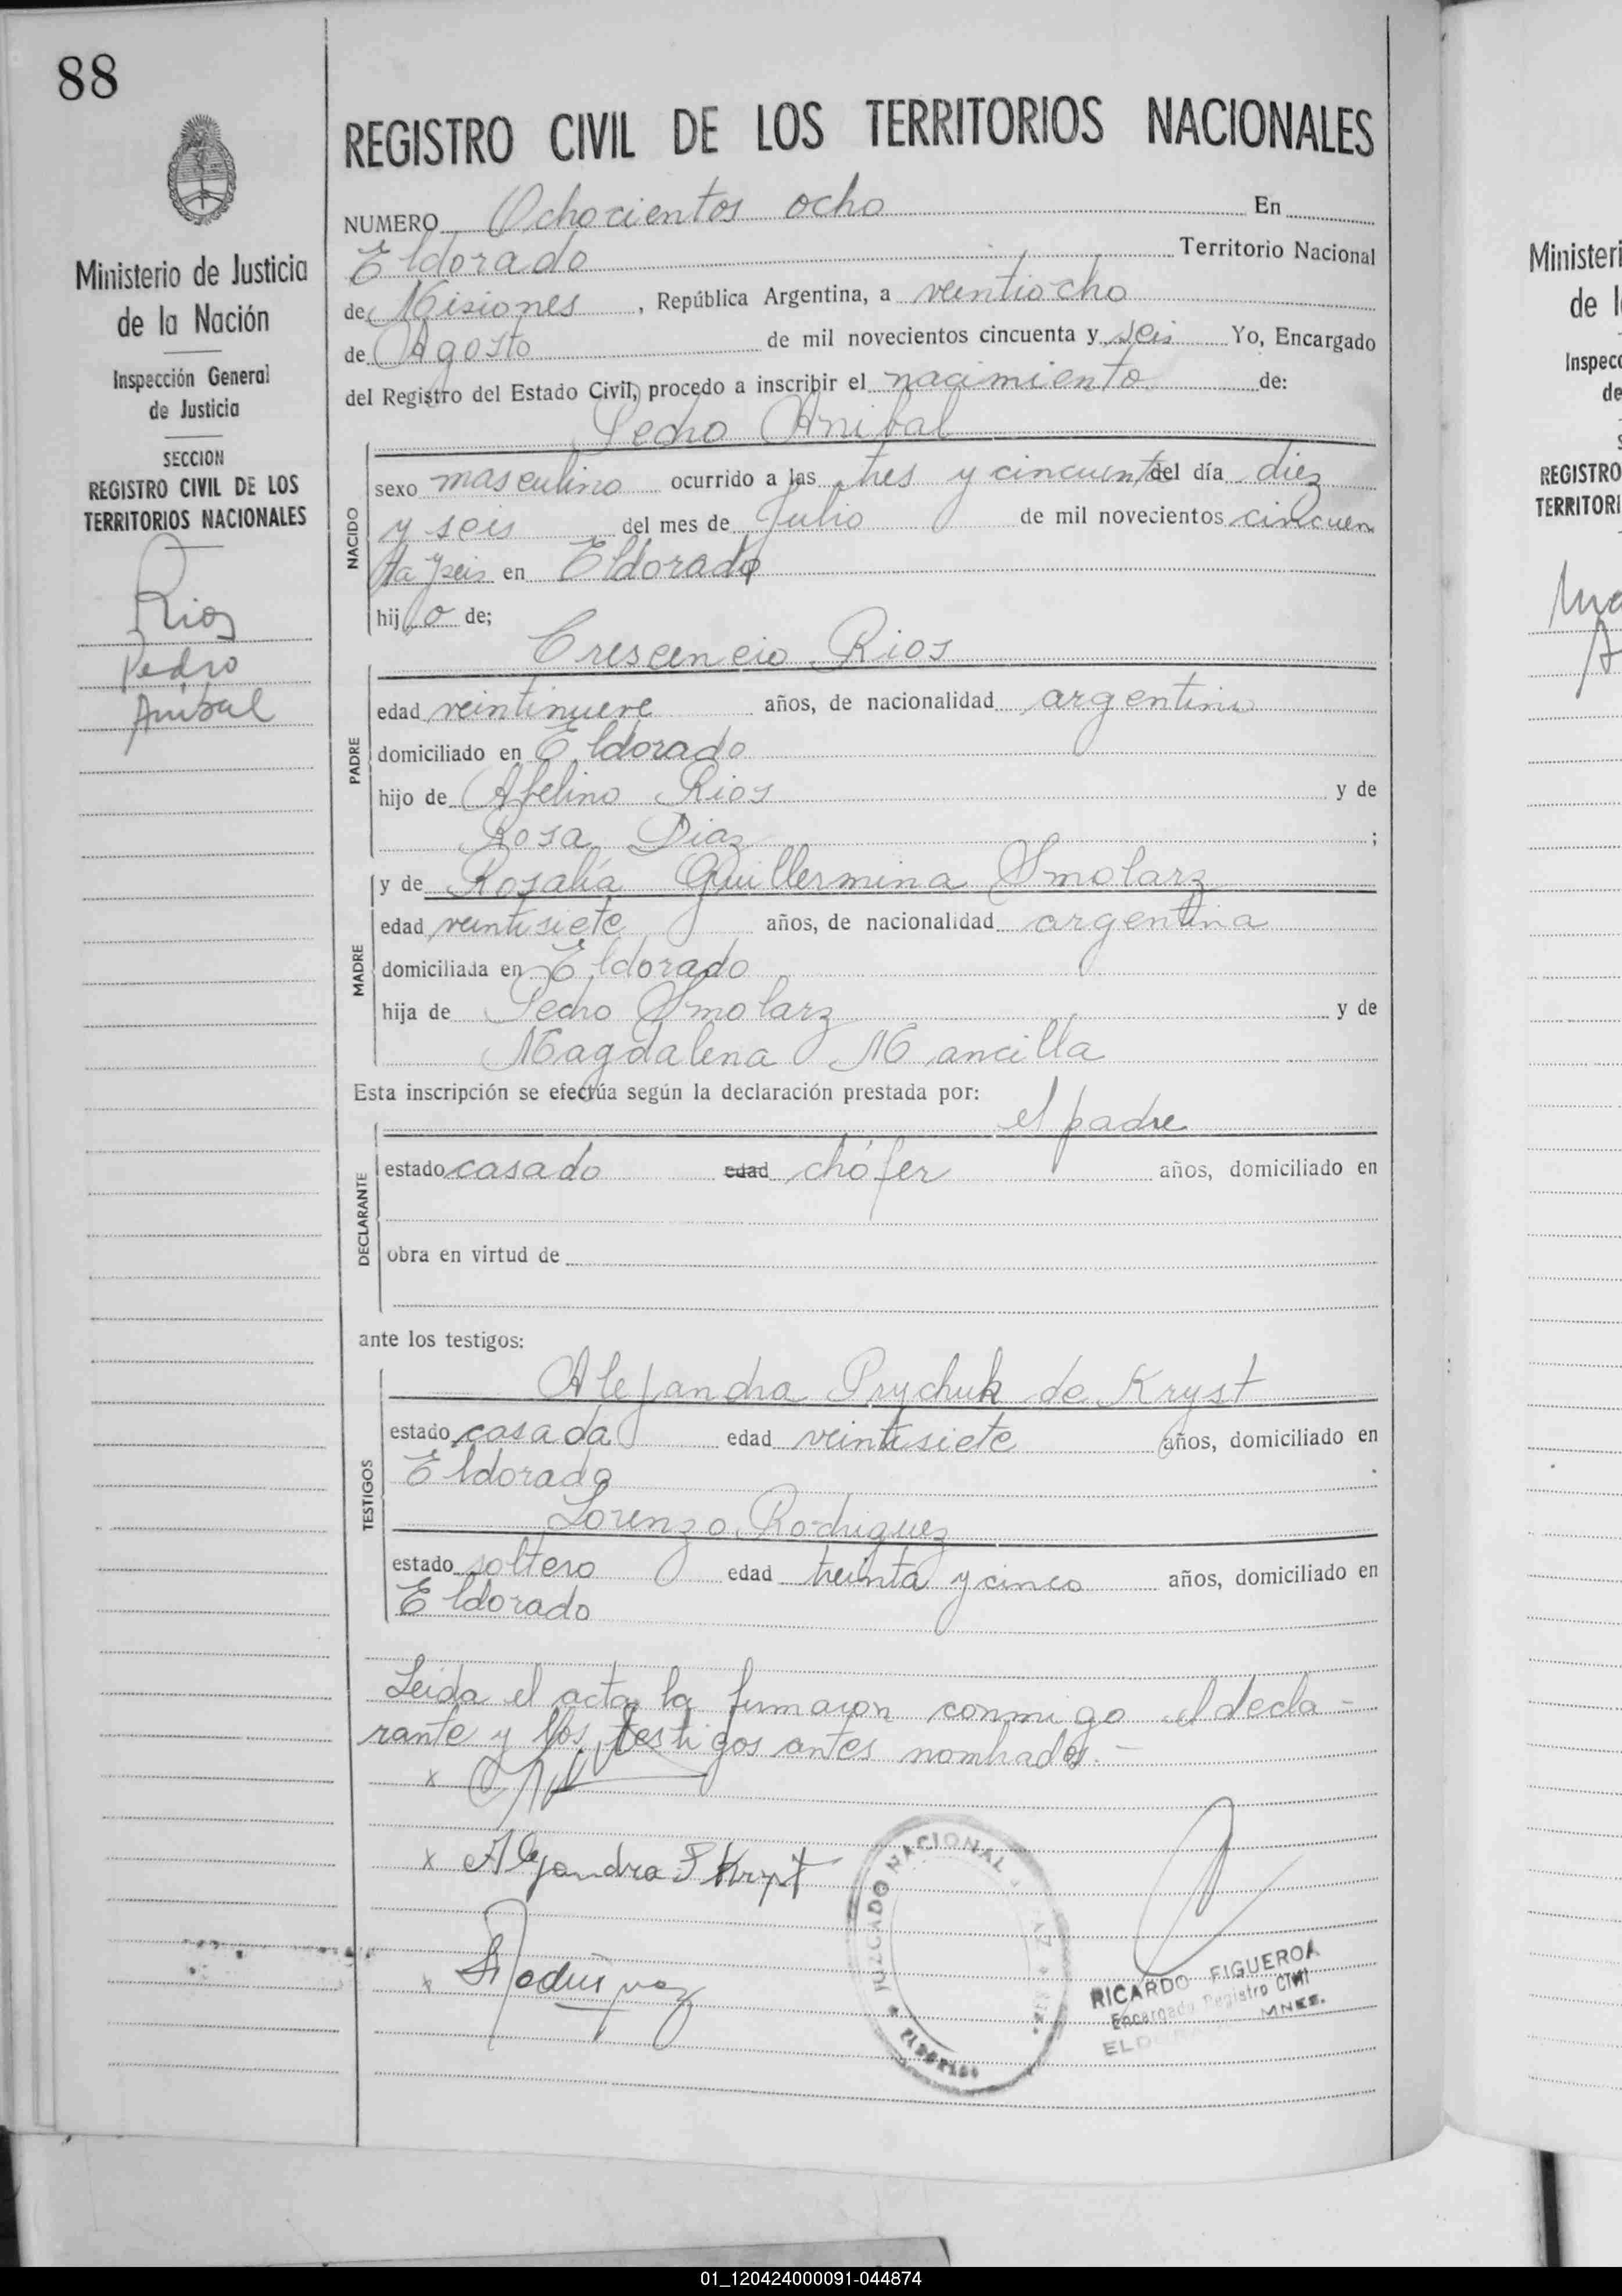 88
Ministerio de Justicia
de la Nación
Inspección General
de Justicia
SECCION
REGISTRO CIVIL DE LOS
TERRITORIOS NACIONALES
Rios
Pedro
Anibal
REGISTRO CIVIL DE LOS TERRITORIOS NACIONALES
NUMERO Ochocientos ocho En
Eldorado Territorio Nacional
de Misiones, República Argentina, a veintiocho
de Agosto de mil novecientos cincuenta y seis Yo, Encargado
del Registro del Estado Civil, procedo a inscribir el nacimiento de:
Pedro Anibal
NACIDO
sexo masculino ocurrido a las tres y cincuenta del día diez
y seis del mes de Julio de mil novecientos cincuen
ta y seis en Eldorado
hijo de;
Crescencio Rios
PADRE
edad veintinueve años, de nacionalidad argentino
domiciliado en Eldorado
hijo de Abelino Rios y de
Rosa Diaz ;
y de Rosalía Guillermina Smolarz
MADRE
edad veintisiete años, de nacionalidad argentina
domiciliada en Eldorado
hija de Pedro Smolarz y de
Magdalena Mancilla
Esta inscripción se efectúa según la declaración prestada por:
el padre
DECLARANTE
estado casado edad chófer años, domiciliado en
obra en virtud de
ante los testigos:
Alejandra Prychuk de Kryst
TESTIGOS
estado casada edad veintisiete años, domiciliado en
Eldorado
Lorenzo Rodriguez
estado soltero edad treinta y cinco años, domiciliado en
Eldorado
Leida el acta la firmaron conmigo el decla-
rante y los testigos antes nombrados.-
x
x Alejandra P Kryst
x Rodriguez
JUZGADO NACIONAL
ELDORADO
RICARDO FIGUEROA
Encargado Registro Civil
MNES.
Ministeri
de l
Inspecc
de
S
REGISTRO
TERRITORI
01_120424000091-044874